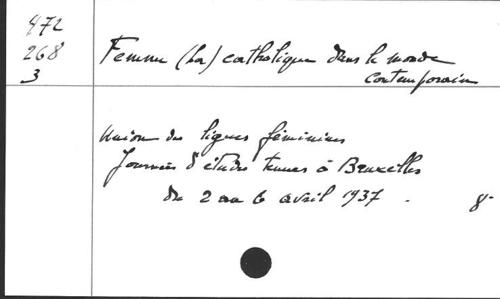 472
268
3
Femme (La) catholique dans le monde
contemporain
Union des ligues féminines
Journées d'études tenues à Bruxelles
du 2 au 6 avril 1937.
8°